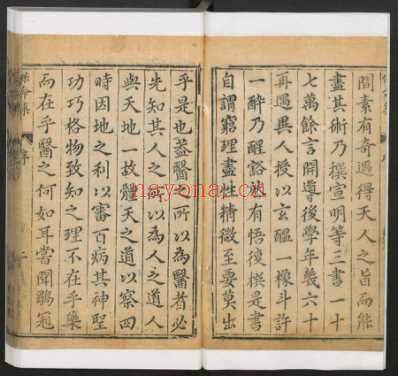 閒素有奇遇得天人之旨而能
盡其術乃撰宣明等三書一十
七萬餘言開導後學年幾六十
再遇異人授以玄醞一椽斗許
一醉乃醒豁然有悟後撰是書
自謂窮理盡性精微至要莫出
乎是也蓋醫之所以為醫者必
先知其人之所以為人之道人
與天地一故體天之道以察四
時因地之利以審百病其神聖
功巧格物致知之理不在乎藥
而在乎醫之何如耳嘗聞鶡冠
命集 序 二
nayona.cn